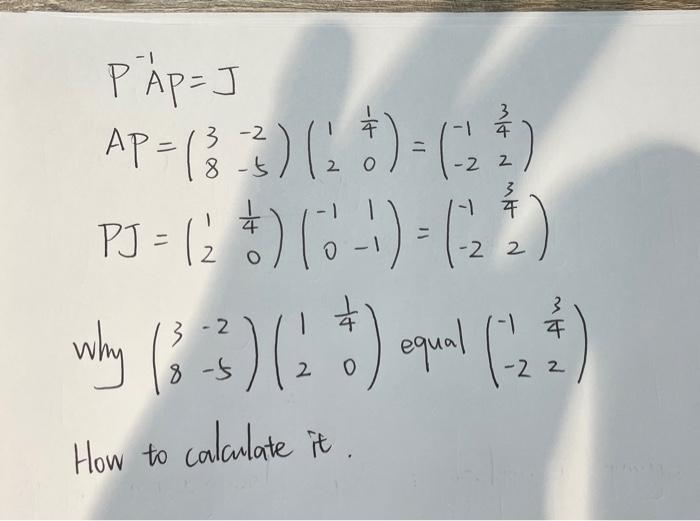 P⁻¹AP = J
AP = (3 -2; 8 -5)(1 1/4; 2 0) = (-1 3/4; -2 2)
PJ = (1 1/4; 2 0)(-1 1; 0 -1) = (-1 3/4; -2 2)
why (3 -2; 8 -5)(1 1/4; 2 0) equal (-1 3/4; -2 2)
How to calculate it.